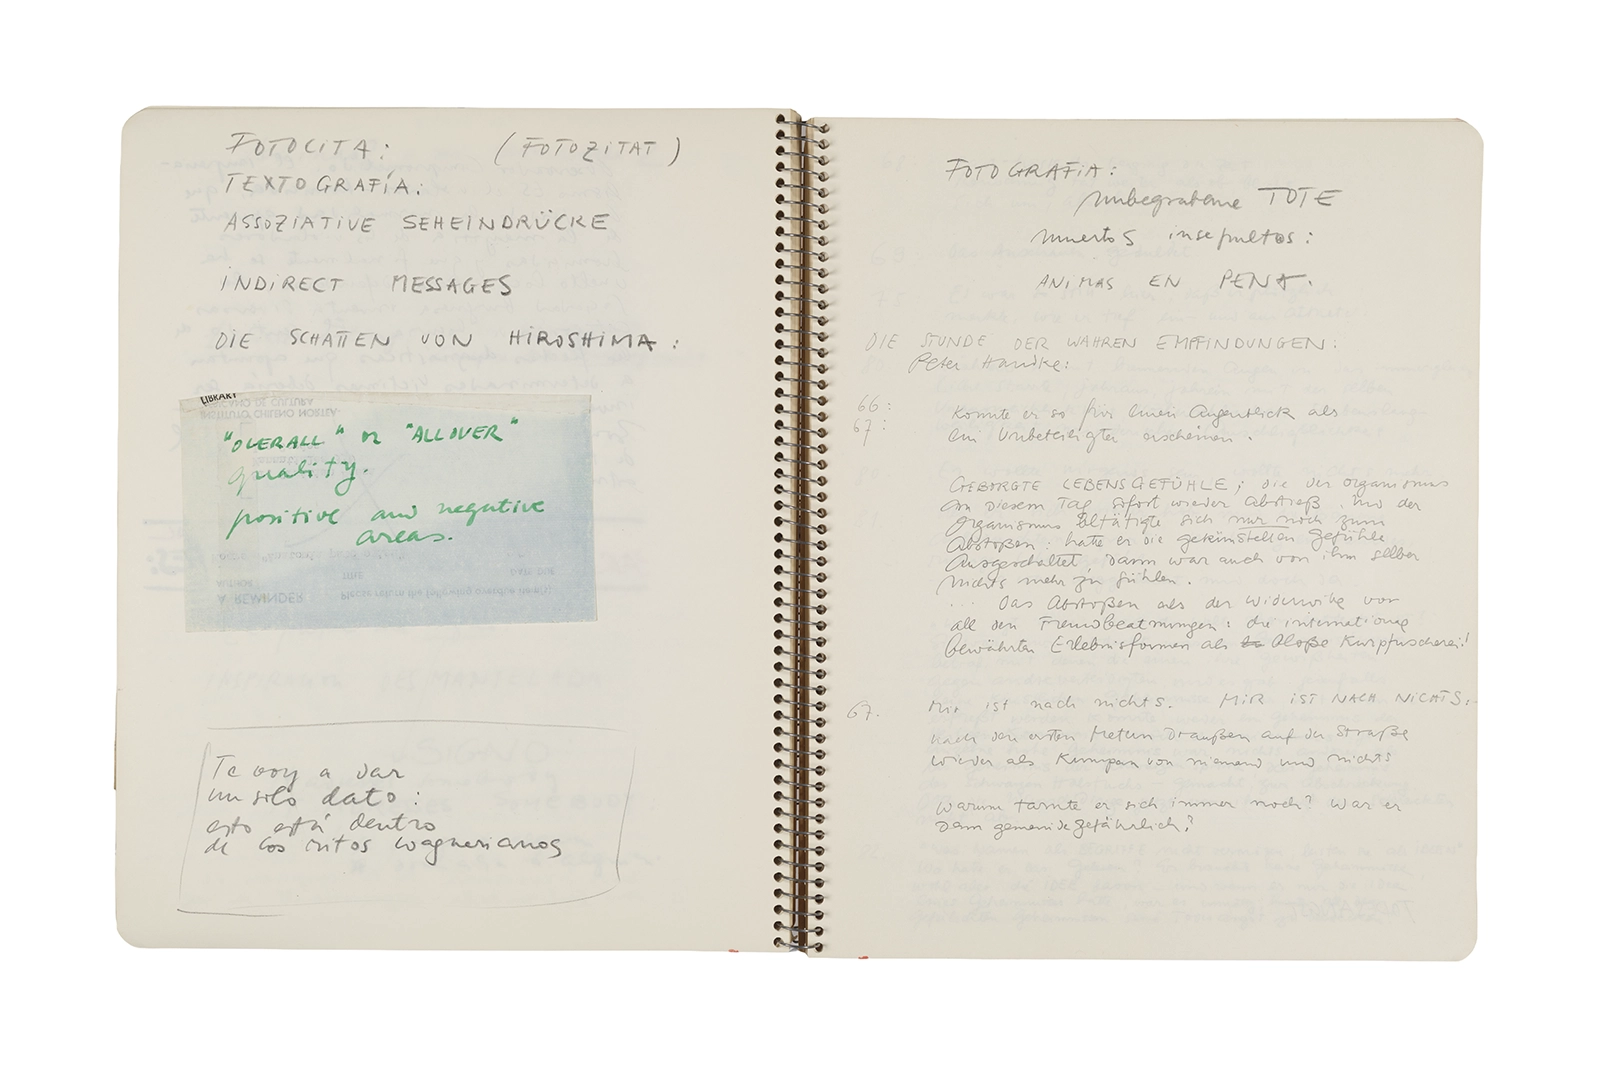 FOTOCITA: (FOTOZITAT)
TEXTOGRAFÍA:
ASSOZIATIVE SEHEINDRÜCKE
INDIRECT MESSAGES
DIE SCHATTEN VON HIROSHIMA:
LIBRARY
"OVERALL" or "ALLOVER"
quality.
positive and negative
areas.
AUTHOR TITLE DATE DUE
A REMINDER Please return the following overdue item(s).
Te voy a dar
un solo dato:
esto está dentro
de los ritos wagnerianos
FOTOGRAFÍA:
unbegrabene TOTE
muertos insepultos:
ANIMAS EN PENA.
DIE STUNDE DER WAHREN EMPFINDUNGEN:
Peter Handke:
66: Konnte er so für einen Augenblick als
67: ein Unbeteiligter erscheinen.
GEBORGTE LEBENSGEFÜHLE; die der Organismus
an diesem Tag sofort wieder abstieß. Und der
Organismus betätigte sich nur noch zum
Abstoßen: hatte er die gekünstelten Gefühle
ausgeschaltet, dann war auch von ihm selber
nichts mehr zu fühlen.
... Das Abstoßen als der Widerwille vor
all den Fremdbeatmungen: die international
bewährten Erlebnisformen als bloße Kurpfuscherei!
67. Mir ist nach nichts. MIR IST NACH NICHTS:
nach den ersten Metern draußen auf der Straße
wieder als Kumpan von niemand und nichts
Warum tarnte er sich immer noch? War er
denn gemeindegefährlich?